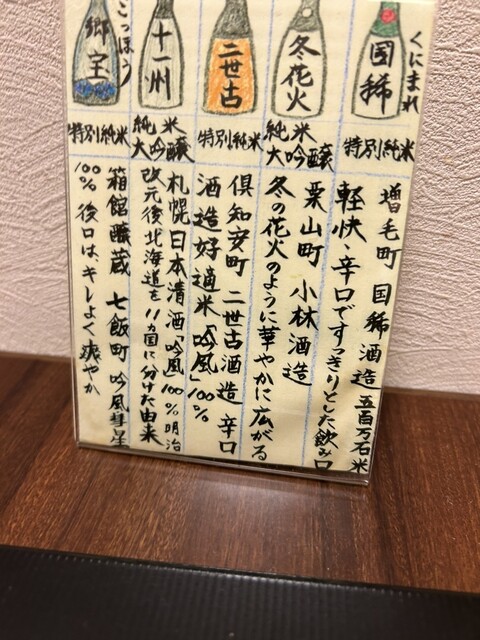 くにまれ
国稀
特別純米
増毛町 国稀酒造 五百万石米
軽快、辛口ですっきりとした飲み口
冬花火
純米
大吟醸
栗山町 小林酒造
冬の花火のように華やかに広がる
二世古
特別純米
倶知安町 二世古酒造 辛口
酒造好適米「吟風」100%
十一州
純米
大吟醸
札幌 日本清酒 「吟風」100% 明治
改元後北海道を11カ国に分けた由来
こっほう
郷宝
特別純米
箱館醸蔵 七飯町 吟風彗星
100% 後口は、キレよく爽やか